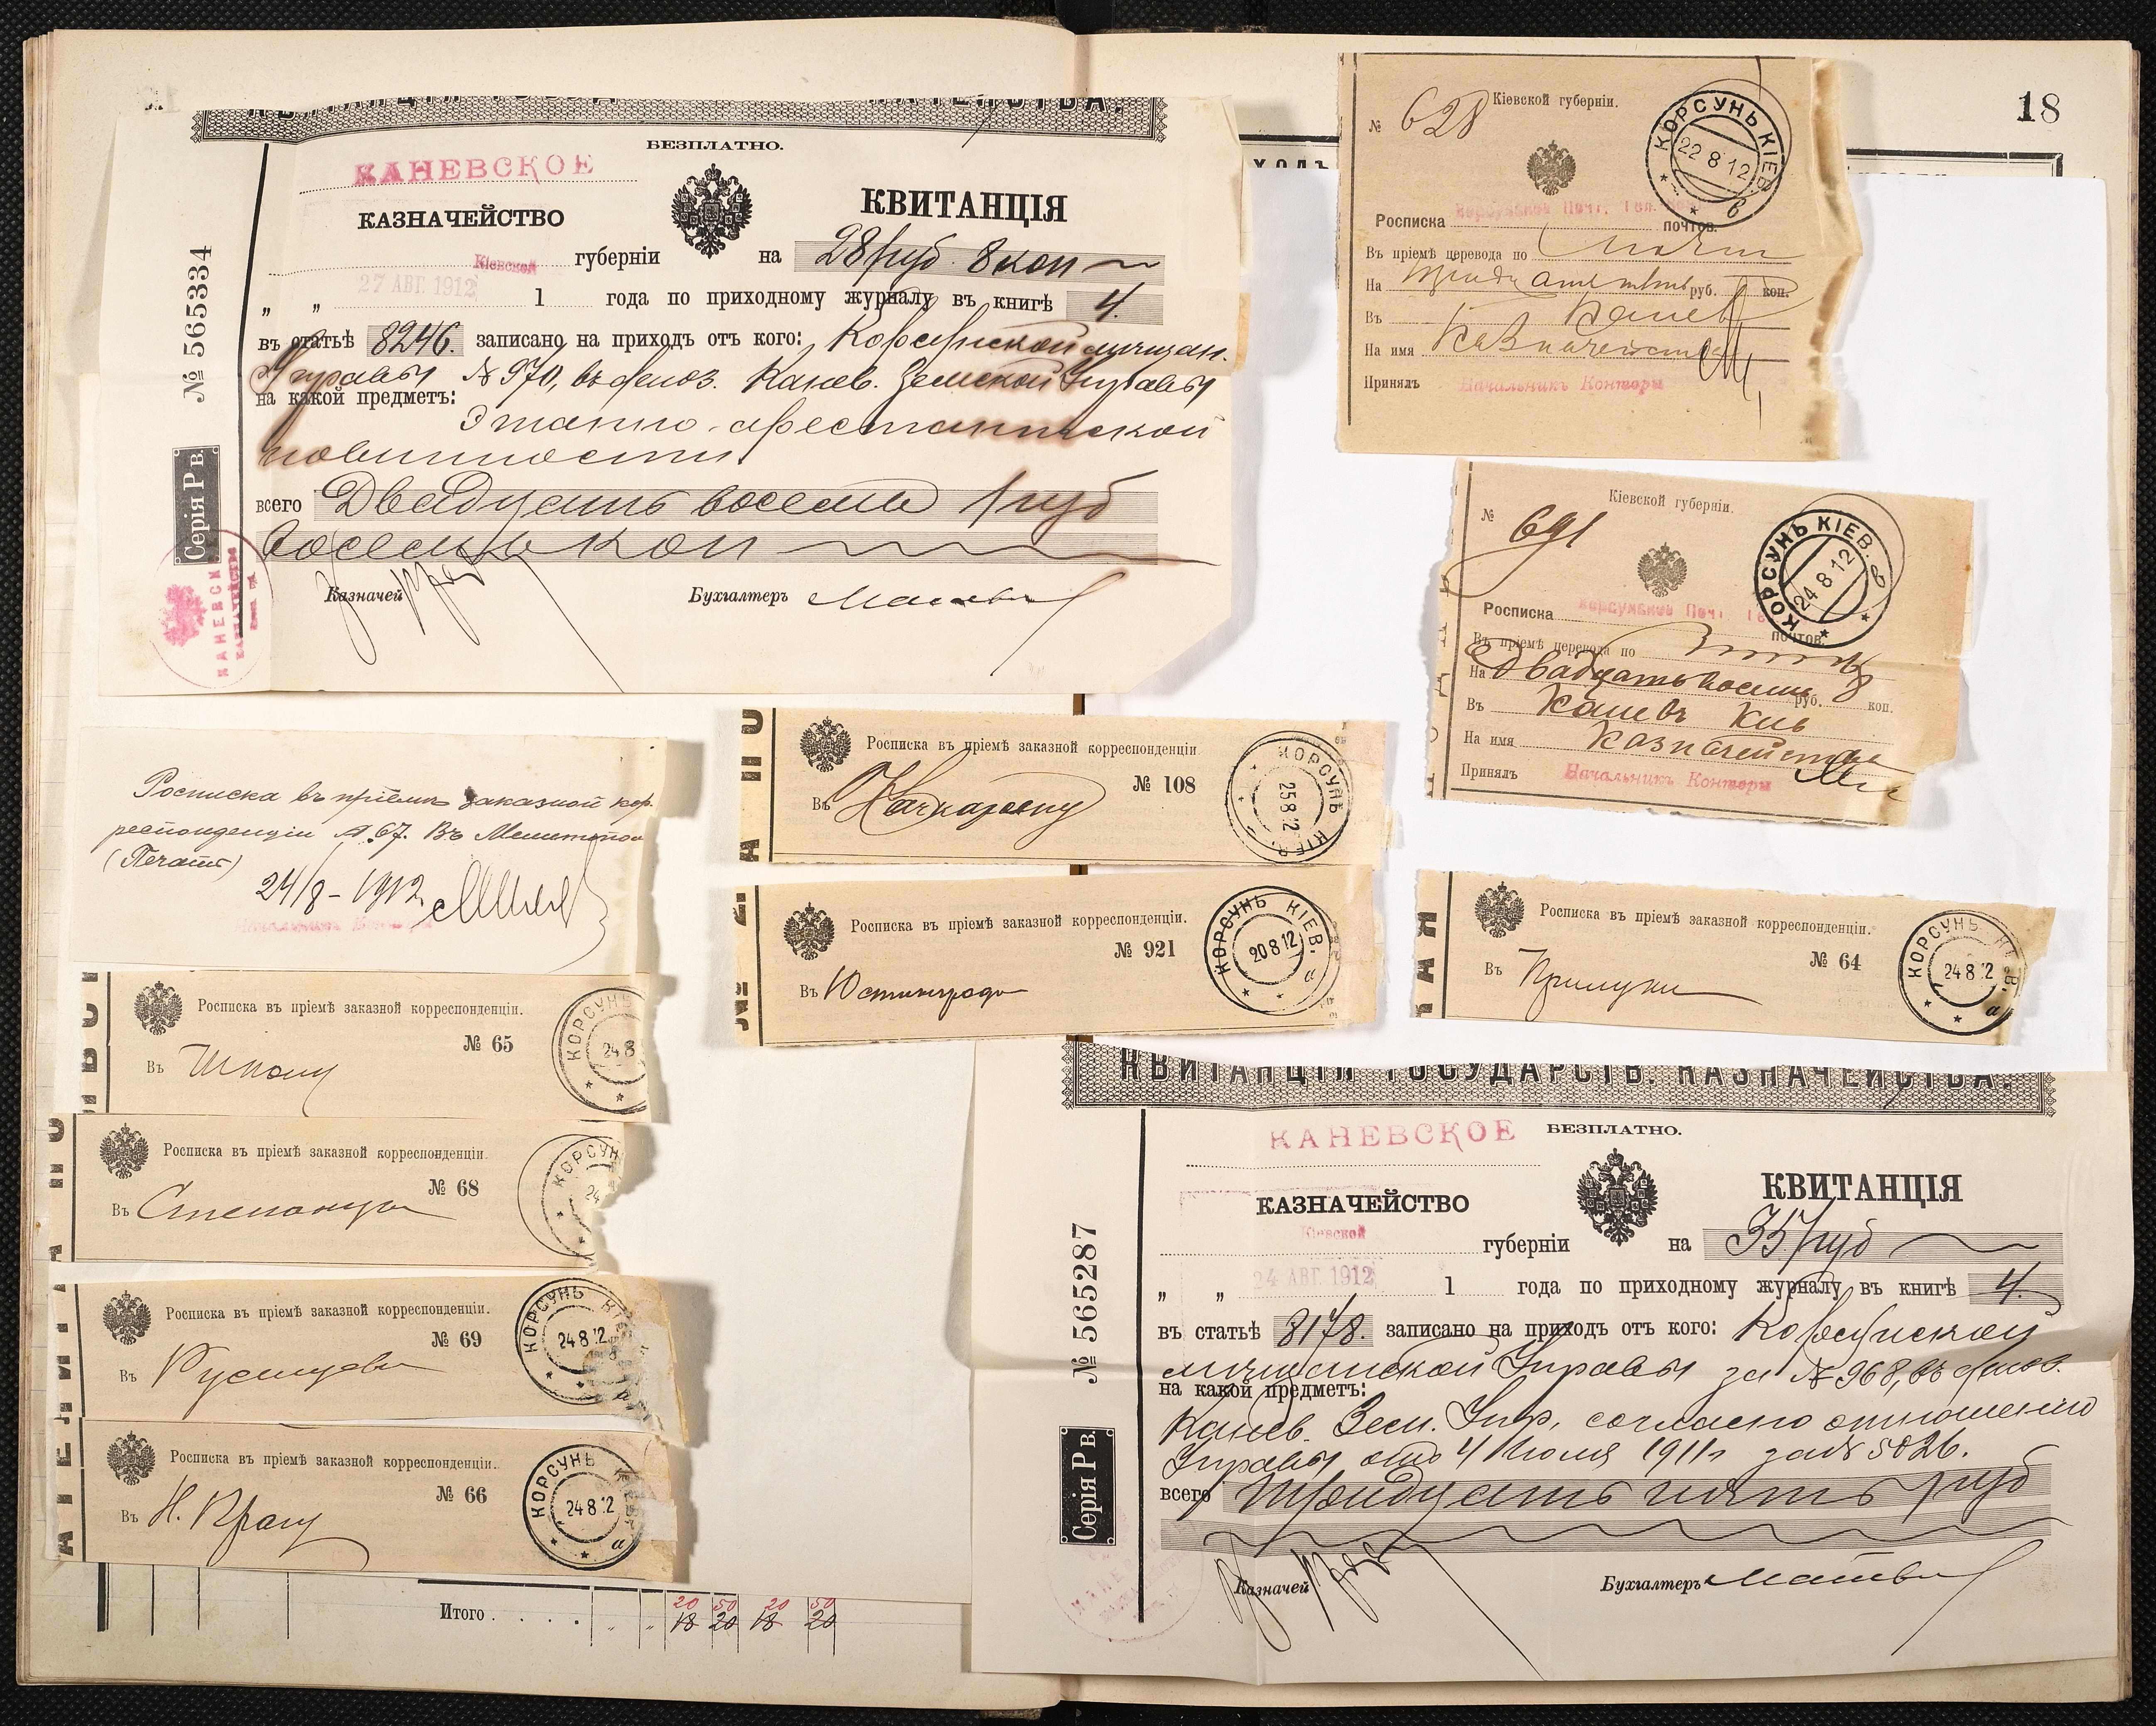 БЕЗПЛАТНО.
КАНЕВСКОЕ
КАЗНАЧЕЙСТВО
КВИТАНЦІЯ
Кіевской губерніи на 28 руб. 8 коп
„ „ 27 АВГ. 1912 1 года по приходному журналу въ книгѣ 4.
въ статьѣ 8246. записано на приходъ отъ кого: Корсунской мѣщан.
Управы № 970, въ Канев. Земской Управы
на какой предметъ:
Этапно-арестантской
повинности
всего Двадцать восемь руб
восемь коп
Казначей Бухгалтеръ
№ 565334
Серія Рв.
18
Кіевской губерніи.
№ 628
КОРСУНЬ КІЕВ. 22 8 12 в
Росписка Корсунское Почт. Тел. почтов.
Въ пріемѣ перевода по почт
На тридцать пять руб. коп.
Въ Канев
На имя Казначейства
Принялъ Начальникъ Конторы
Кіевской губерніи.
№ 691
КОРСУНЬ КІЕВ. 24 8 12 в
Росписка Корсунское Почт почтов.
Въ пріемѣ перевода по
На Двадцать восемь руб. 8 коп.
Въ Каневъ Кіев
На имя Казначейства
Принялъ Начальникъ Конторы
Росписка въ пріемѣ заказной кор-
респонденціи № 67. Въ Мелитополь
(Печать)
24/8 - 1912
Начальникъ Конторы
Росписка въ пріемѣ заказной корреспонденціи.
№ 108
Въ
КОРСУНЬ КІЕВ. 25 8 12
Росписка въ пріемѣ заказной корреспонденціи.
№ 921
Въ Юстинград
КОРСУНЬ КІЕВ. 20 8 12 а
Росписка въ пріемѣ заказной корреспонденціи.
№ 64
Въ Прилуки
КОРСУНЬ КІЕВ. 24 8 12 а
Росписка въ пріемѣ заказной корреспонденціи.
№ 65
Въ Шполу
КОРСУНЬ 24 8
Росписка въ пріемѣ заказной корреспонденціи.
№ 68
Въ Степанцы
КОРСУН 24
Росписка въ пріемѣ заказной корреспонденціи.
№ 69
Въ
КОРСУНЬ КІЕВ 24 8 12
Росписка въ пріемѣ заказной корреспонденціи.
№ 66
Въ Н. Прагу
КОРСУНЬ 24 8 12 а
Итого . . . .
20 50 20 50
18 20 18 20
КВИТАНЦІЯ ГОСУДАРСТВ. КАЗНАЧЕЙСТВА.
БЕЗПЛАТНО.
КАНЕВСКОЕ
КАЗНАЧЕЙСТВО
КВИТАНЦІЯ
Кіевской губерніи на 35 руб
„ „ 24 АВГ. 1912 1 года по приходному журналу въ книгѣ 4.
въ статьѣ 8178. записано на приходъ отъ кого: Корсунской
мѣщанской Управы за № 968, въ
на какой предметъ:
Канев. Зем. Упр. согласно отношенію
Управы отъ 4 Іюля 1911 г за № 5026.
всего Тридцать пять руб
Казначей Бухгалтеръ
№ 565287
Серія Рв.